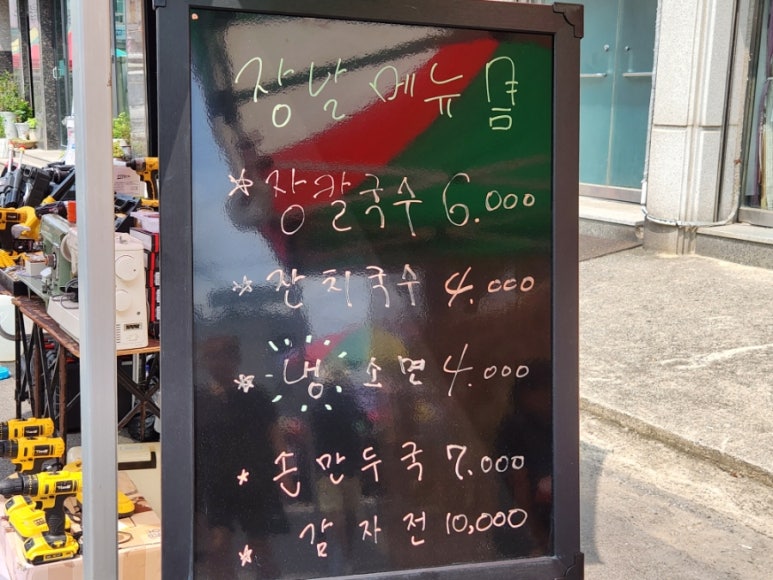 장날 메뉴
장칼국수 6.000
잔치국수 4.000
냉소면 4.000
손만두국 7.000
감자전 10,000